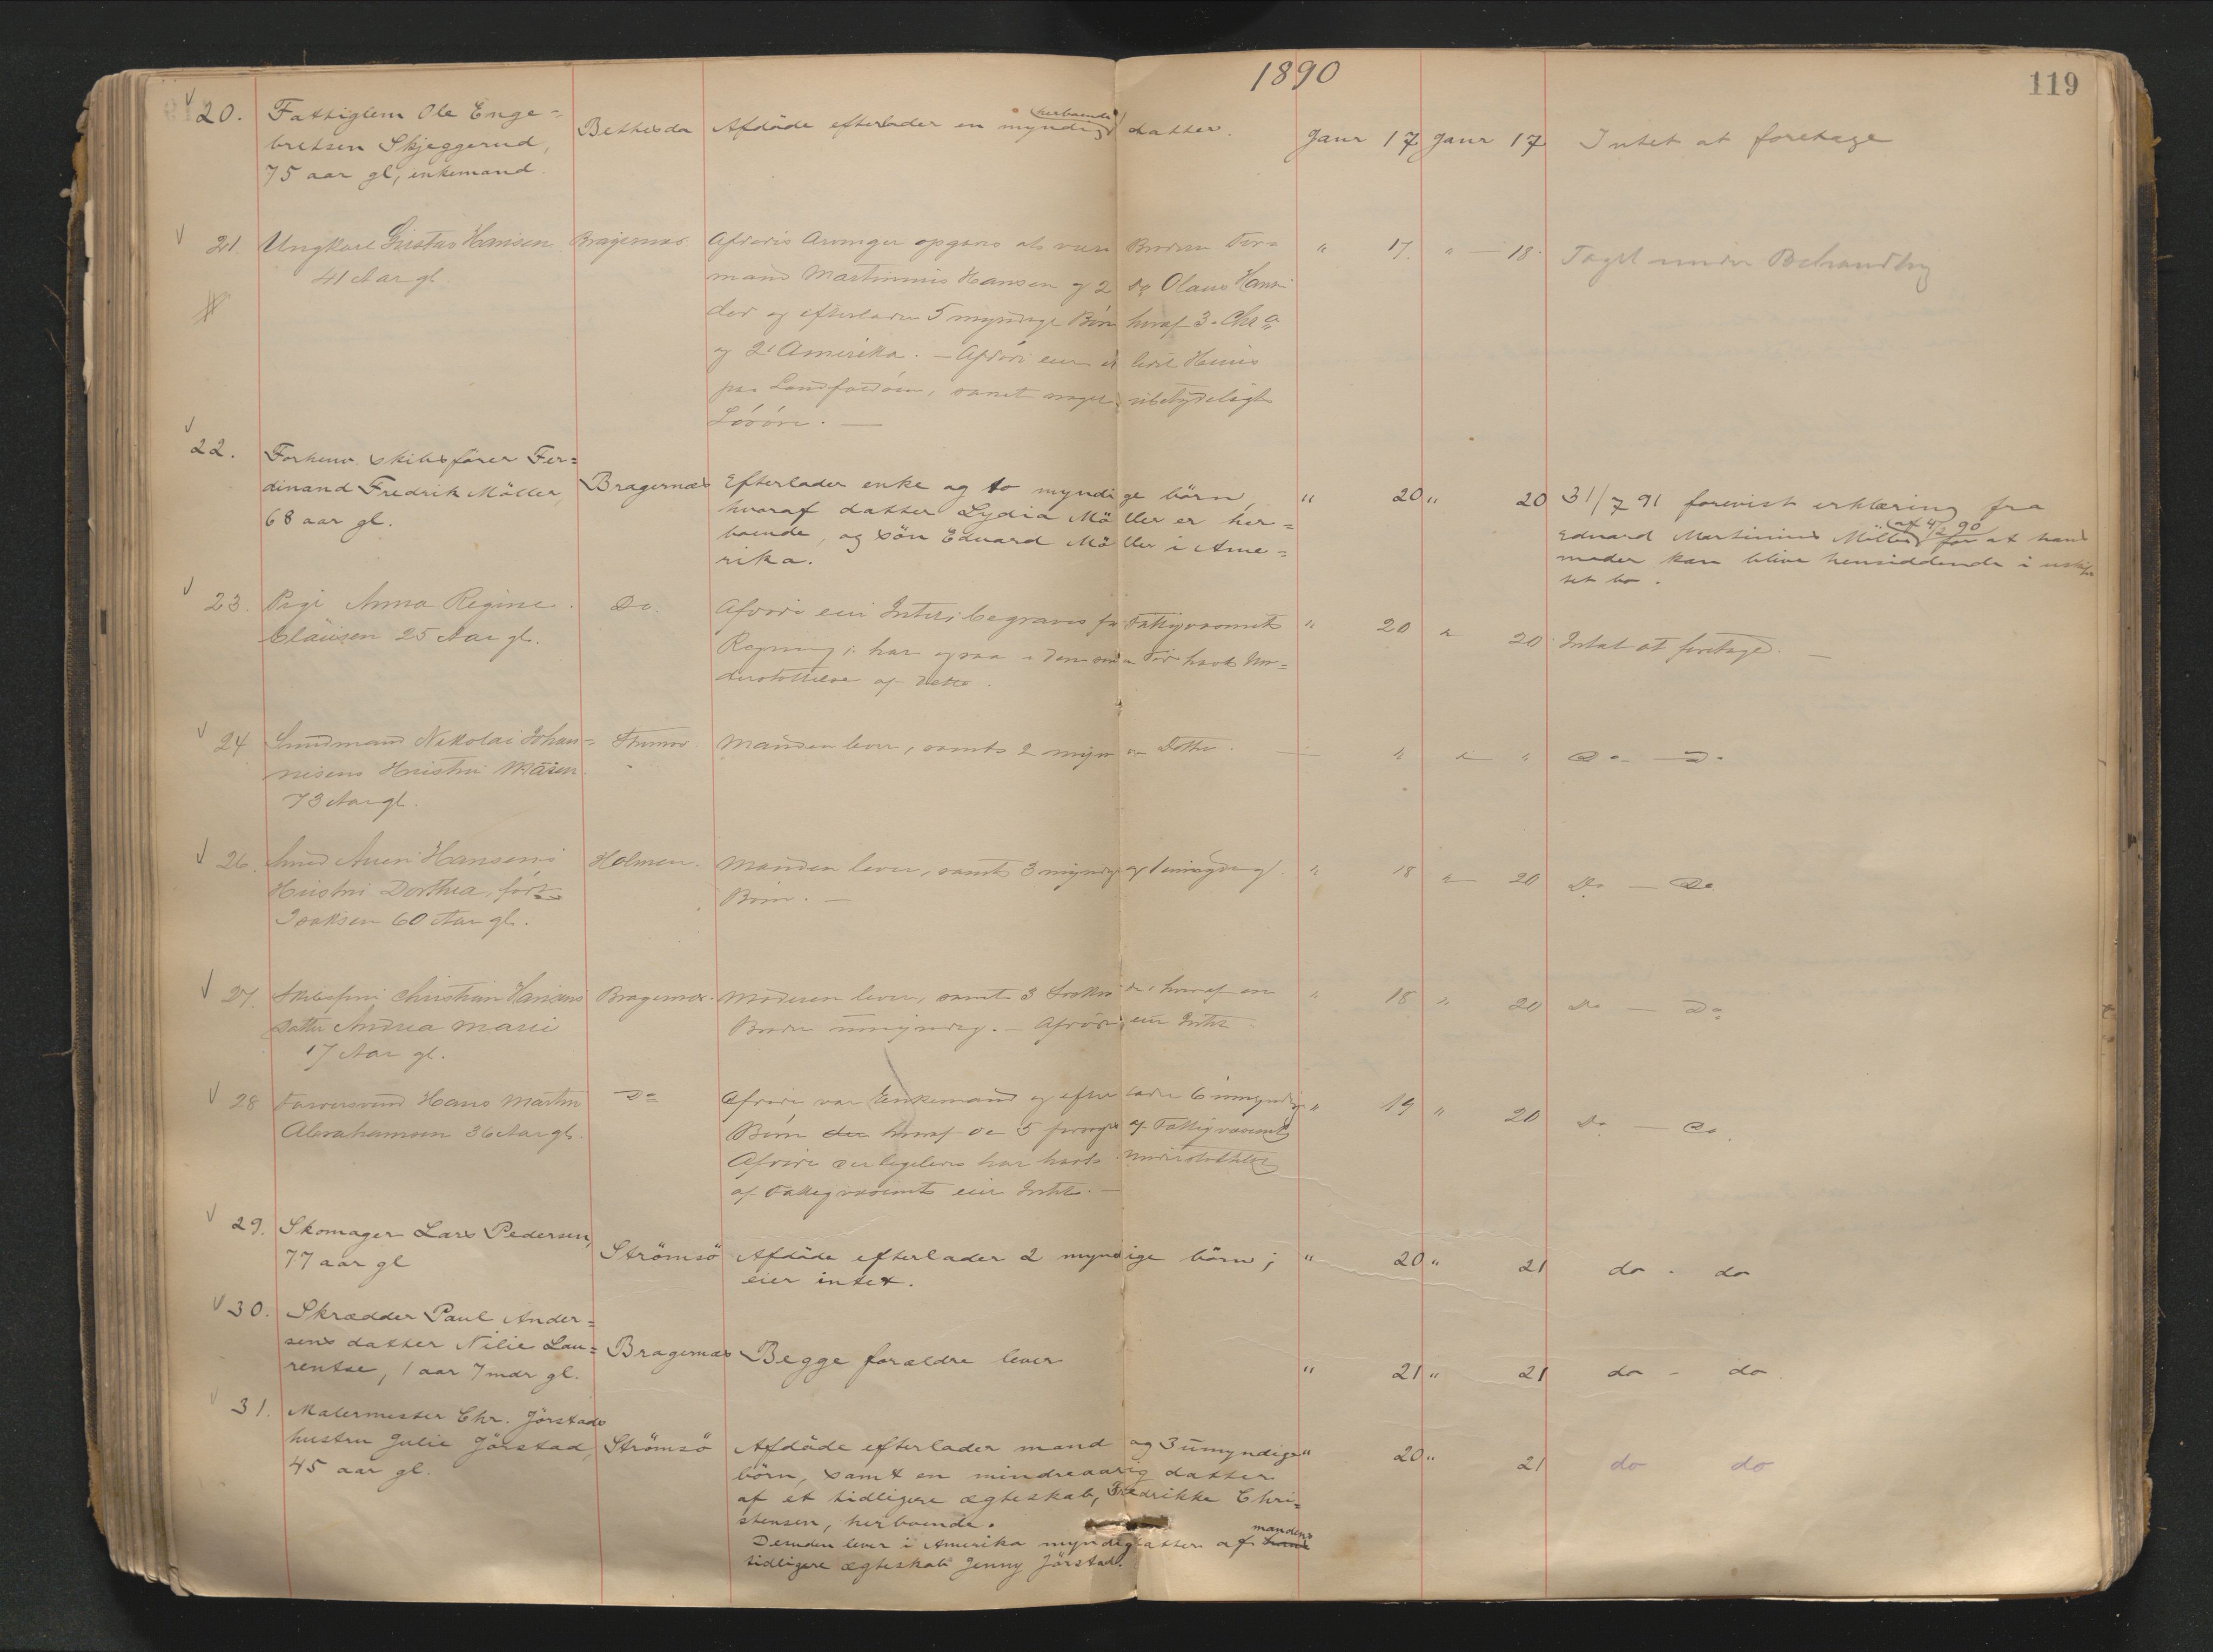 1890
119
20. Fattiglem Ole Enge-
bretsen Skjeggerud,
75 aar gl, enkemand.
Bethesda
herboende
Afdøde efterlader en myndig datter.
Janr 17 Janr 17 Intet at foretage
21. Ungkarl Gustav Hansen
41 Aar gl.
Bragernæs.
Afdødes Arvinger opgives at være Broderen For=
mand Martinius Hansen og 2 Olaus Hans
død og efterlader 5 myndige Børn hvoraf 3 Chra
og 2 i Amerika. — Afdøde eier et lidet Huus
paa Landfaldøen, samt noget ubetydeligt
Løsøre. —
" 17. " — 18. Taget under Behandling
22. Forhenv. skibsfører Fer=
dinand Fredrik Møller,
68 aar gl.
Bragernæs
Efterlader enke og to myndige børn,
hvoraf datter Lydia Møller er her=
boende, og søn Eduard Møller i Ame=
rika.
" 20 " 20 31/7 91 forevist erklæring fra
af 4/2 90
Eduard Martinius Møller for at hans
moder kan blive hensiddende i uskif
tet bo.
23. Pige Anna Regine
Clausen 25 Aar gl.
Do.
Afdøde eier Intet; begraves for Fattigvæsenets
Regning; har ogsaa i den senere Tid havt Un=
derstøttelse af dette.
" 20 " 20 Intet at foretage. —
24 Nikolai Johan=
nesens Hustru Maren
73 Aar gl.
Strømsø
Manden lever, samt 2 Døtre.
" " " Do — Do
26. Smed Hansens
Hustru Dorthea, født
Isaksen 60 Aar gl.
Holmen.
Manden lever, samt 3 myndige og 1 umyndigt
Børn. —
" 18 " 20 Do — Do
27. Skibsfører Christian Hansens
Datter Andrea Marie
17 Aar gl.
Bragernæs.
Moderen lever, samt 3 Søskende, hvoraf en
Broder umyndig. — Afdøde eier Intet.
" 18 " 20 Do — Do
28 Hans Martin
Abrahamsen 36 Aar gl.
Do
Afdøde var Enkemand og efterlader 6 umyndige
Børn hvoraf de 5 forsørges af Fattigvæsenet
Afdøde der ligeledes har havt Understøttelse
af Fattigvæsenet eier Intet. —
" 19 " 20 Do — Do.
29. Skomager Lars Pedersen,
77 aar gl
Strømsø
Afdøde efterlader 2 myndige børn;
eier intet.
" 20 " 21 do - do
30. Skrædder Paul Ander=
sens datter Nilie Lau=
rentse, 1 aar 7 mdr gl.
Bragernæs
Begge forældre lever
" 21 " 21 do - do
31. Malermester Chr. Jörstads
hustru Julie Jörstad,
45 aar gl.
Strömsö
Afdöde efterlader mand og 3 umyndige
börn, samt en mindreaarig datter
af et tidligere ægteskab, Fredrikke Chri=
stensen, herboende.
mandens
Desuden lever i Amerika myndig datter af hans
tidligere ægteskab Jenny Jörstad.
" 20 " 21 do do